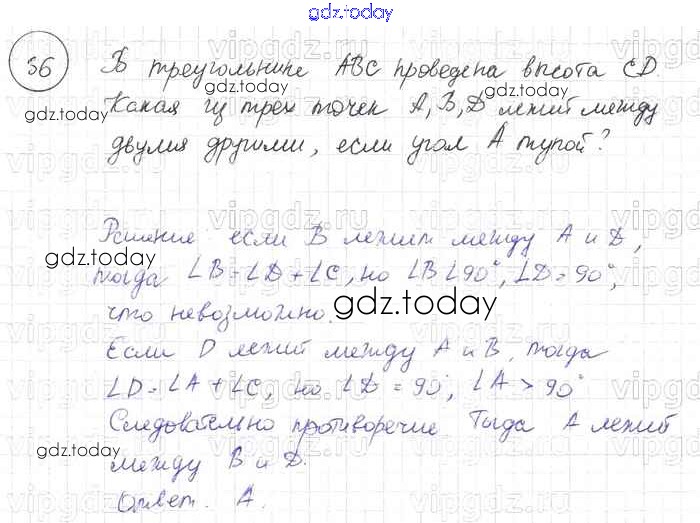 gdz.today
36
В треугольнике ABC проведена высота CD.
gdz.today
gdz.today
Какая из трех точек A, B, D лежит между
двумя другими, если угол A тупой?
Решение: если B лежит между A и D,
gdz.today
тогда ∠B = ∠D + ∠C, но ∠B ∠90°, ∠D = 90°,
gdz.today
что невозможно.
Если D лежит между A и B, тогда
∠D = ∠A + ∠C, но ∠D = 90°, ∠A > 90°
Следовательно противоречие. Тогда A лежит
gdz.today
gdz.today
между B и D.
Ответ. A.
gdz.today